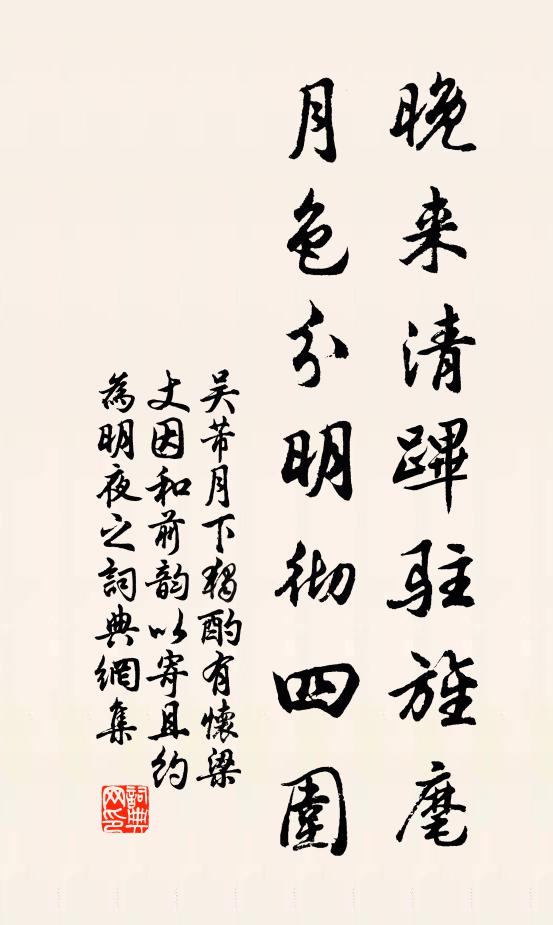 晚来清蹕驻旌麾
月色分明彻四圍
吴芾月下獨酌有懷梁
丈因和前韵以寄且约
為明夜之詞典網集
詞典网印